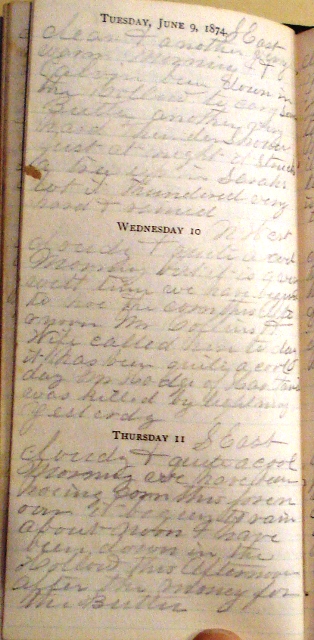 TUESDAY, JUNE 9, 1874.
S East
clear & another very
warm Morning &
have been down in
the Hollow to carry some
Butter another very
hard thunder shower
just at night it struck
a tree up in
lot it thundered very
hard & rained
WEDNESDAY 10
N West
cloudy & quite a cool
Morning but it is
with time we have begun
to hoe the corn
Mr Collins &
Wife called here to day
it has been quite a cool
day
was killed by lightning
yesterday
THURSDAY 11
S East
cloudy & quite a cool
Morning we have been
hoeing corn this foren
oon it begun to rain
about noon I have
been down in the
Hollow this Afternoon
after the money for
the Butter